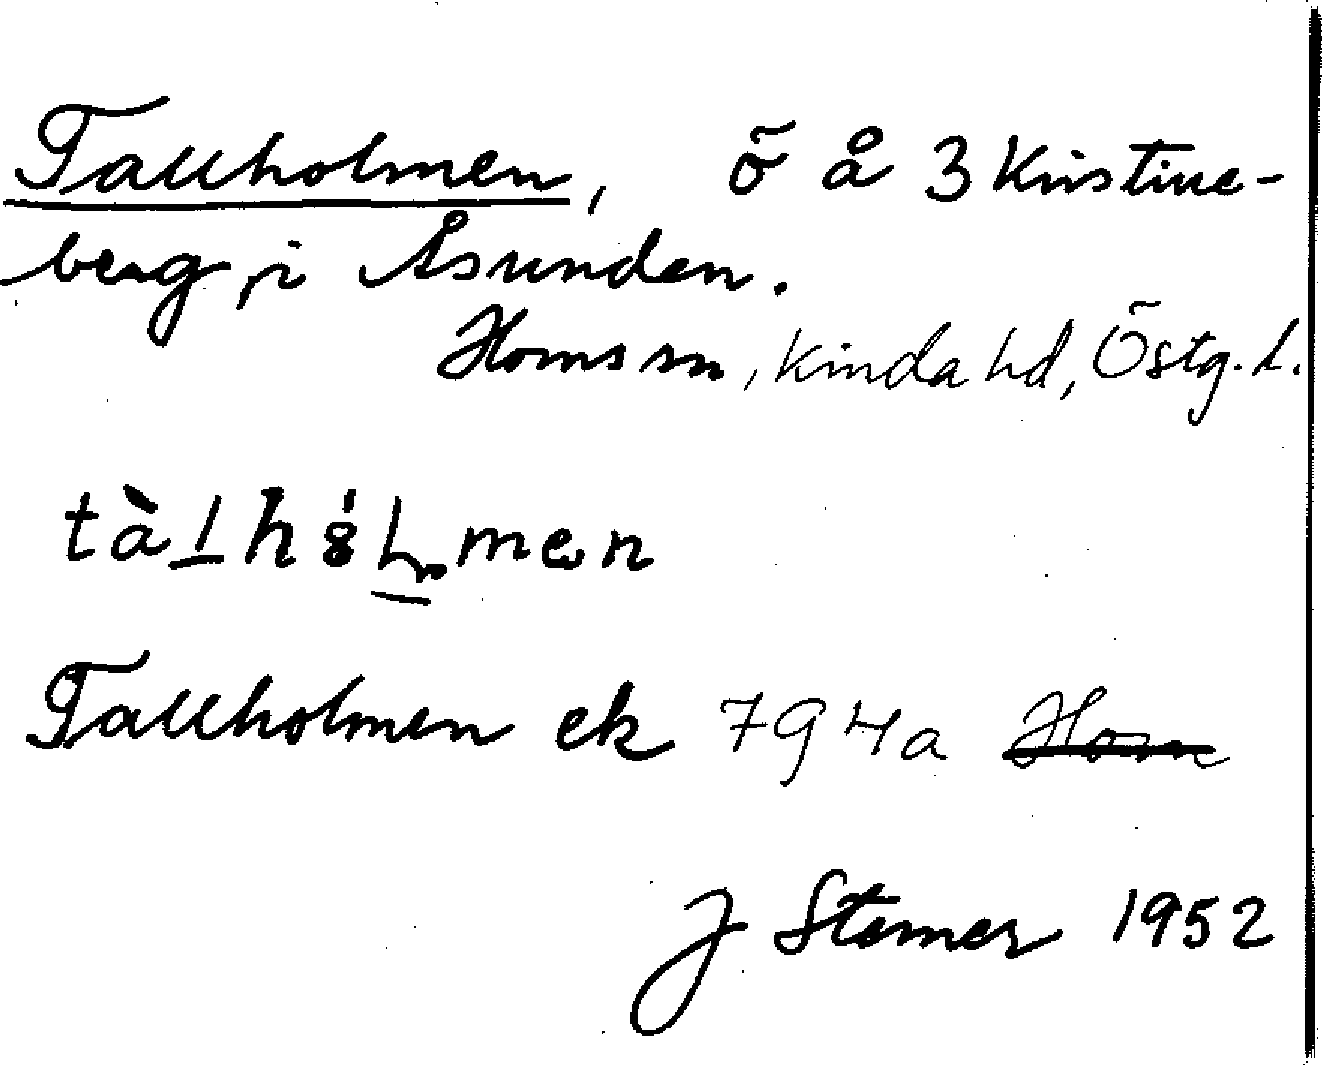 Tallholmen, ö å 3 Kristine-
berg, i Åsunden.
Horns sn, Kinda hd, Östg. l.
tàlhólmen
Tallholmen ek 794a Horn
J Stemer 1952